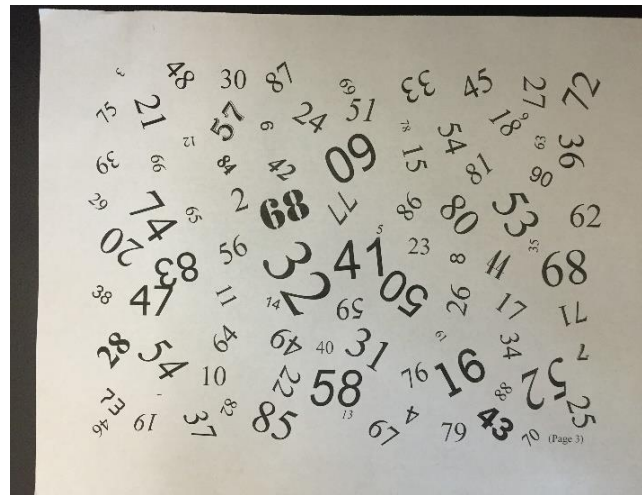 3 48 30 87 69 33 45 27 72
75 21 57 6 24 51 78 54 18 9 36
39 66 12 84 42 60 15 81 63 90
29 74 65 2 68 77 86 80 53 62
20 83 56 32 41 5 23 8 44 35 68
38 47 11 14 59 50 26 17 71
28 54 64 49 40 31 61 34 7
10 22 58 76 16 88 52
73 46 19 37 82 85 13 67 4 79 43 70 25
(Page 3)